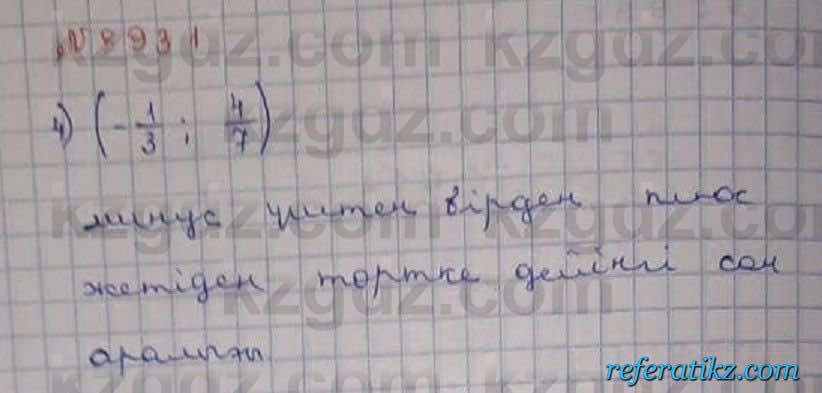 № 893 1
4) (-1/3 ; 4/7)
минус үштен бірден плюс
жетіден төртке дейінгі сан
аралығы
kzgdz.com
referatikz.com